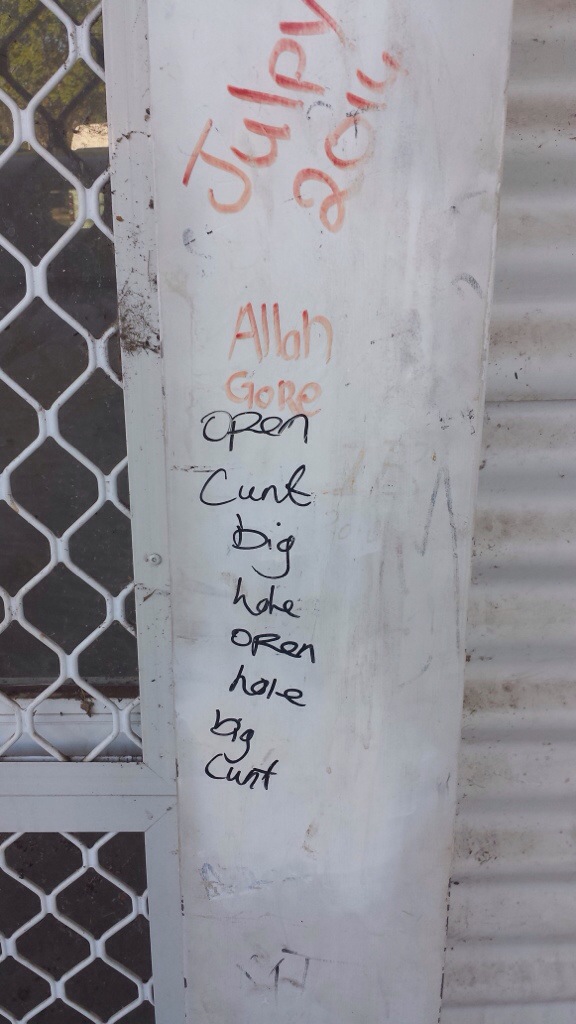 Julpy
2014
Allah
GORE
OPEN
Cunt
big
hole
OPEN
hole
big
Cunt